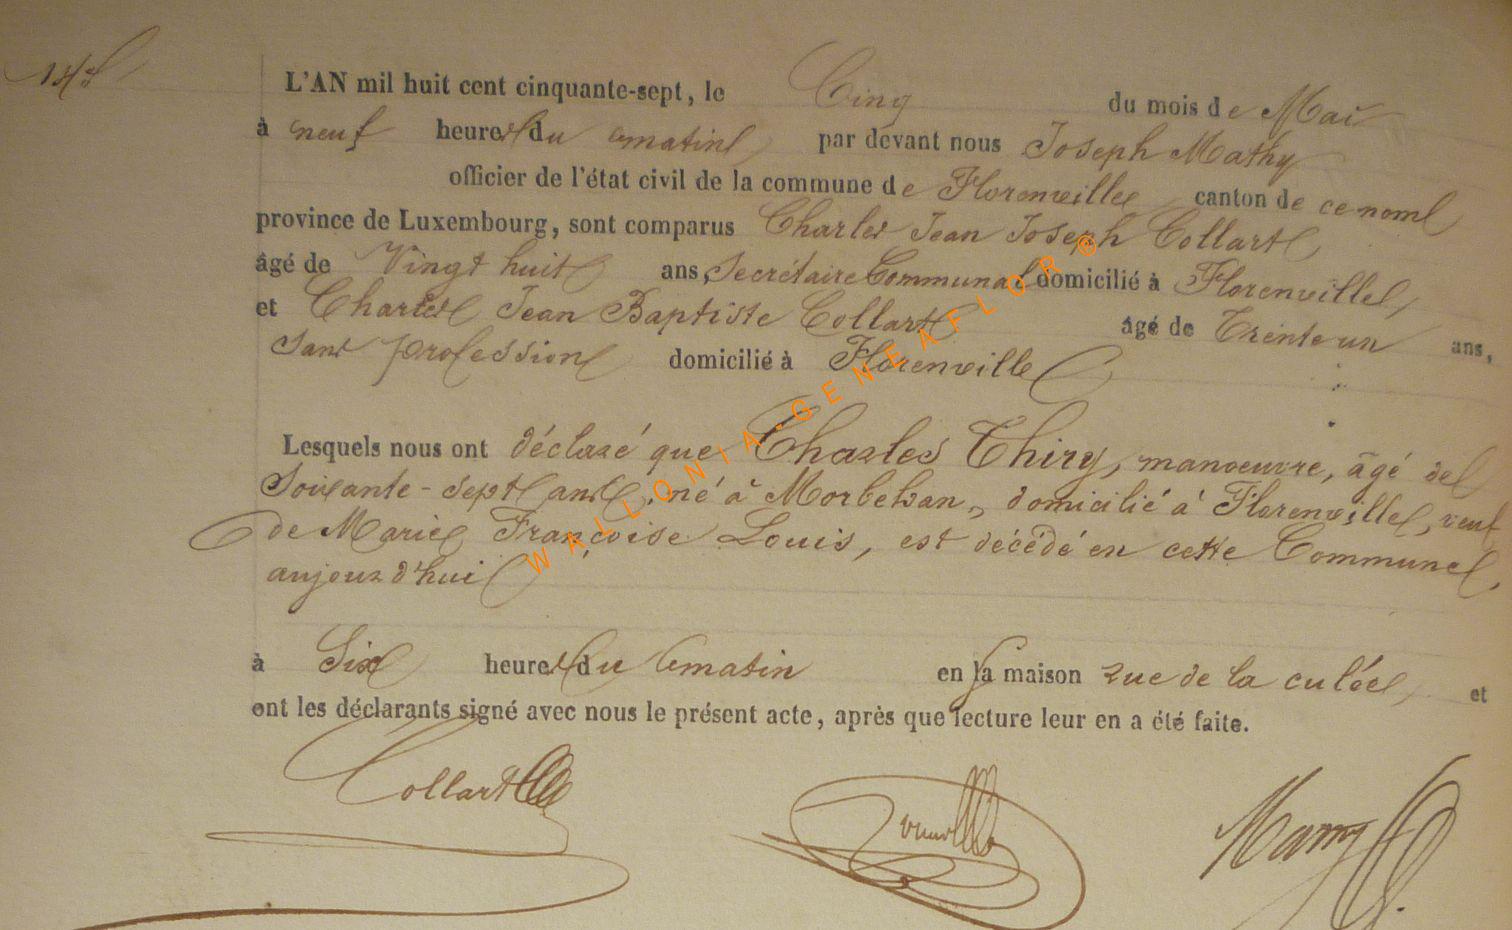 L'AN mil huit cent cinquante-sept, le Cinq du mois de Mai
à neuf heures du matin par devant nous Joseph Mathy
officier de l'état civil de la commune de Florenville canton de ce nom
province de Luxembourg, sont comparus Charles Jean Joseph Collart
âgé de Vingt huit ans, Secrétaire Communal domicilié à Florenville,
et Charles Jean Baptiste Collart âgé de Trente un ans,
Sans profession domicilié à Florenville
Lesquels nous ont déclaré que Charles Thiry, manoeuvre, âgé de
Soixante-sept ans, né à Morbehan, domicilié à Florenville, veuf
de Marie Françoise Louis, est décédé en cette Commune,
aujourd'hui
à Six heures du matin en sa maison rue de la culée, et
ont les déclarants signé avec nous le présent acte, après que lecture leur en a été faite.
Collart
WALLONIA-GENEAFLOR®